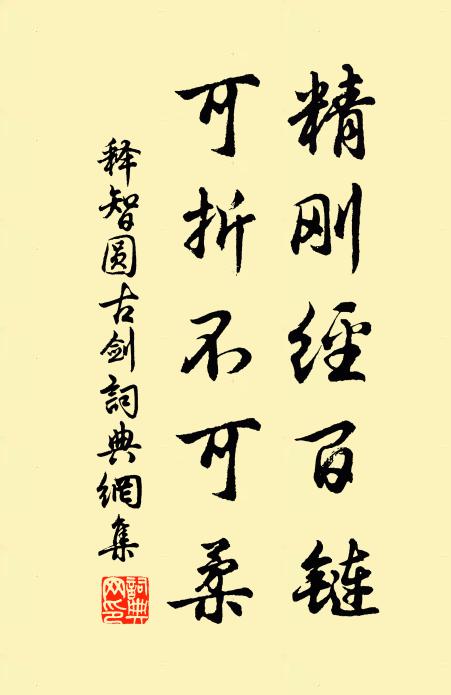 精刚经百鏈
可折不可柔
释智圆古剑詞典網集
詞典網印